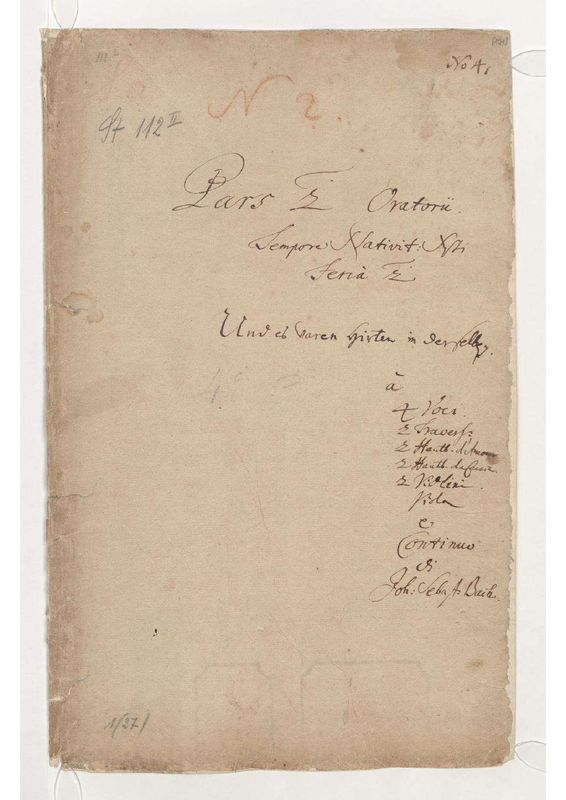 No 4.
N 2.
St 112 II
Pars 2 Oratorii.
Tempore Nativit: Xsti
Feria 2
Und es waren Hirten in derselben.
à
4 Voci.
2 Travers:
2 Hautb. d'Amor
2 Hautb. da Caccia
2 Violini.
Viola
e
Continuo
di
Joh: Sebast: Bach.
1/27/